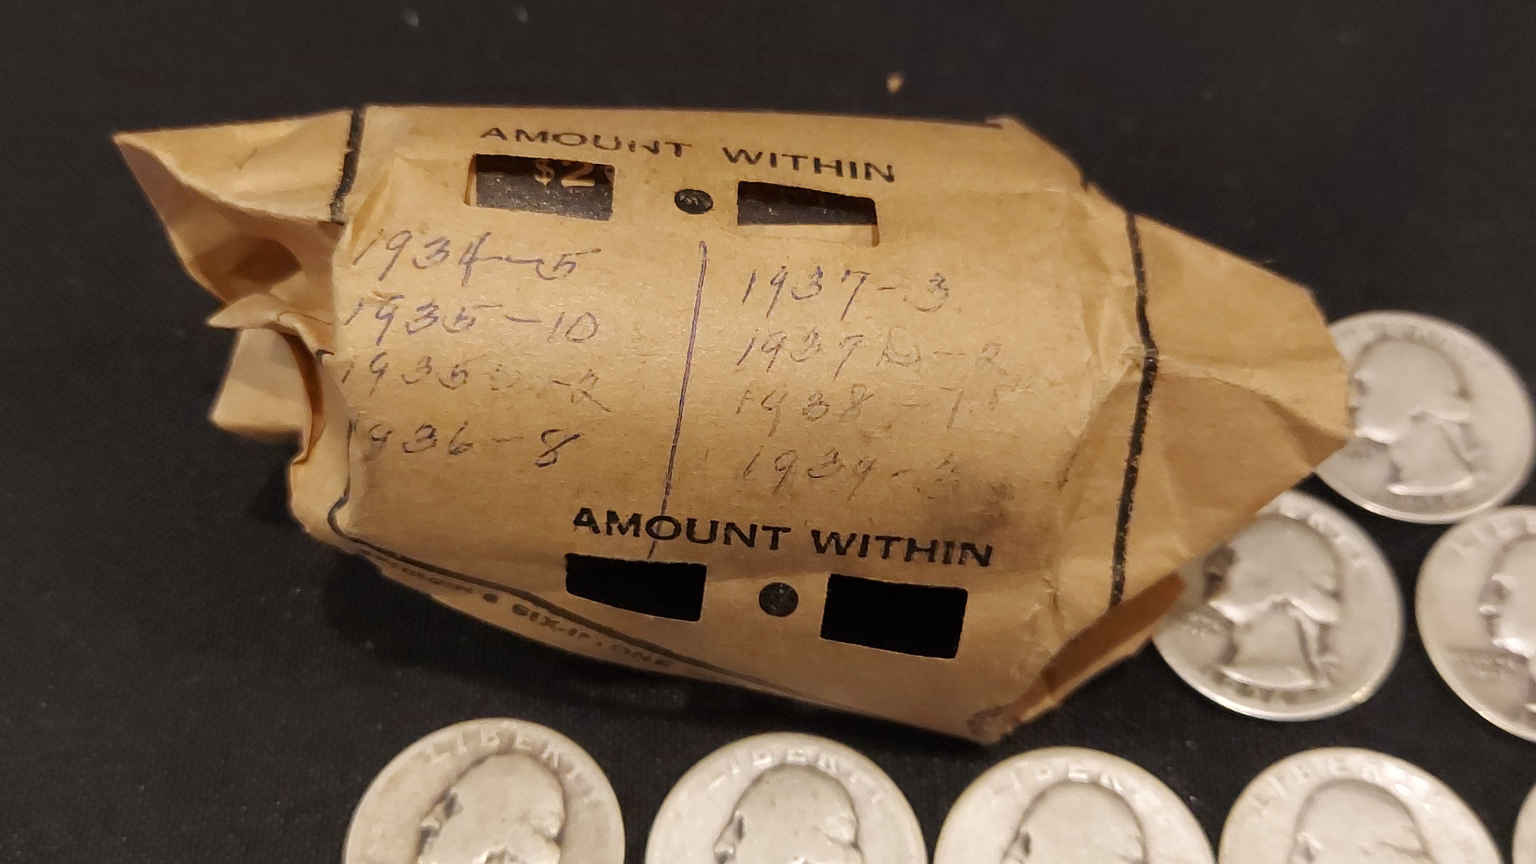 AMOUNT WITHIN
$2
1934-5
1935-10
1935 -2
1936-8
1937-3
1937D-2
1938-
1939-
AMOUNT WITHIN
SIX-IN-ONE
LIBERTY
LIBERTY
LIBERTY
LIBERTY